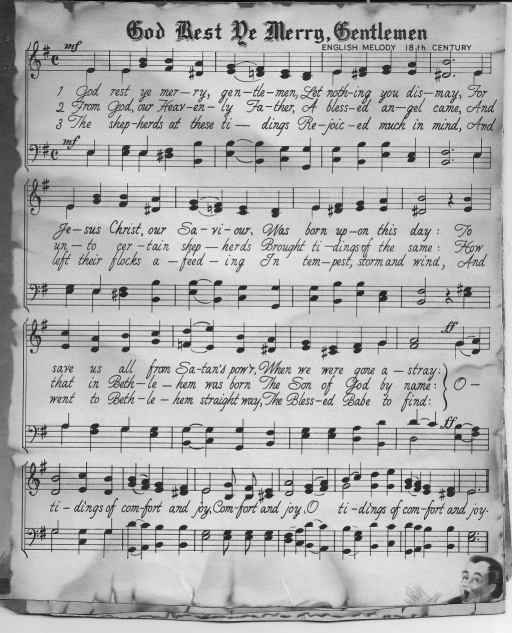 God Rest Ye Merry, Gentlemen
ENGLISH MELODY 18th CENTURY
mf
1 God rest ye mer-ry, gen-tle-men, Let noth-ing you dis-may, For
2 From God, our Heav-en-ly Fa-ther, A bless-ed an-gel came, And
3 The shep-herds at these ti-dings Re-joic-ed much in mind, And
mf
Je-sus Christ, our Sa-vi-our, Was born up-on this day: To
un-to cer-tain shep-herds Brought ti-dings of the same: How
left their flocks a-feed-ing In tem-pest, storm and wind, And
ff
save us all from Sa-tan's pow'r, When we were gone a-stray:
that in Beth-le-hem was born The Son of God by name: O-
went to Beth-le-hem straight way, The Bless-ed Babe to find:
ff
ti-dings of com-fort and joy, Com-fort and joy, O ti-dings of com-fort and joy.